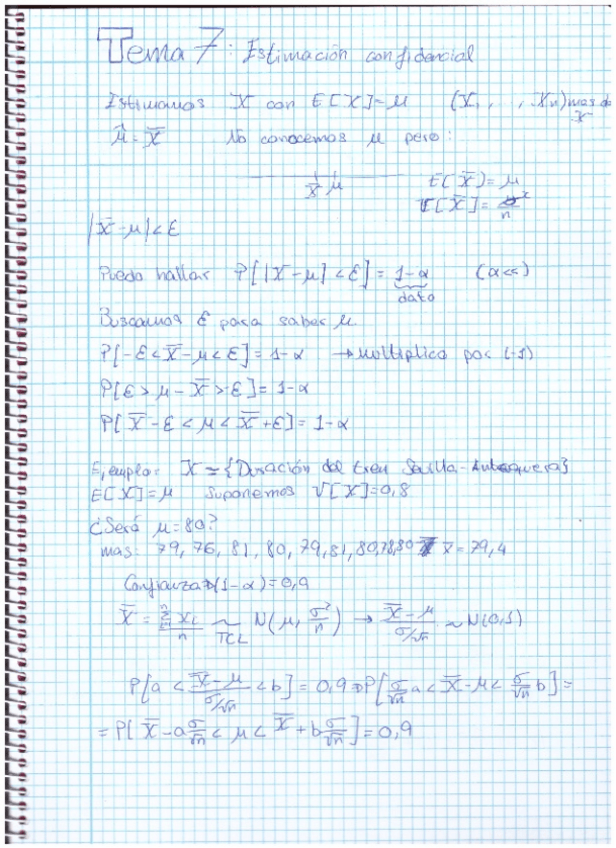 Tema 7: Estimación confidencial
Estimamos X con E[X]=μ (X₁, , .Xn) mas de X
μ̂ = X̄ No conocemos μ pero:
X̄ μ
E[X̄]=μ
V[X̄]=σ²/n
|X̄-μ|<ε
Puedo hallar P[|X̄-μ|<ε]=1-α (α<<)
dato
Buscamos ε para saber μ
P[-ε<X̄-μ<ε]=1-α →multiplico por (-1)
P[ε>μ-X̄>-ε]=1-α
P[X̄-ε<μ<X̄+ε]=1-α
Ejemplo: X={Duración del tren Sevilla-Antequera}
E[X]=μ Suponemos V[X]=0,8
¿Será μ=80?
mas: 79, 76, 81, 80, 79, 81, 80, 78, 80 x̄=79,4
Confianza→(1-α)=0,9
X̄ = Σ xi/n ~ N(μ, σ²/n) → (X̄-μ)/(σ/√n) ~ N(0,1)
TCL
P[a < (X̄-μ)/(σ/√n) < b] = 0,9 ⇒ P[σ/√n a < X̄-μ < σ/√n b] =
= P[X̄ - a σ/√n < μ < X̄ + b σ/√n] = 0,9